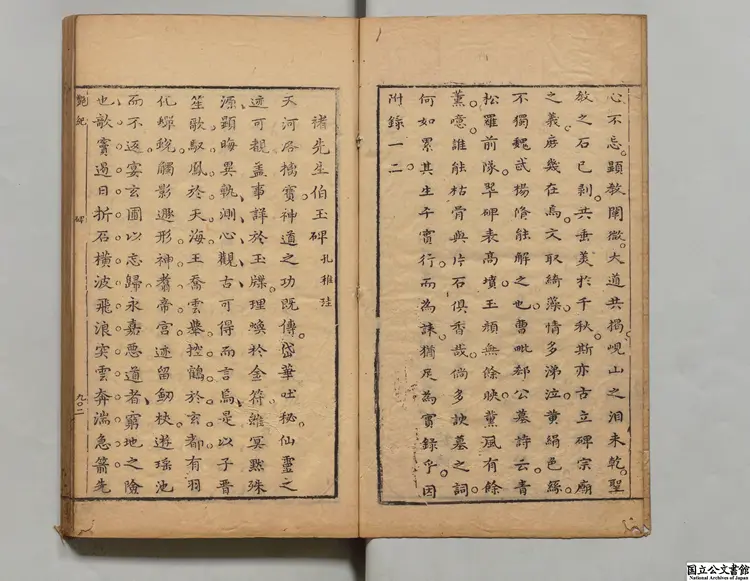 心不忘顯教闡微大道共揭峴山之泪未乾聖
教之石已剥共垂美於千秋斯亦古立碑宗廟
之義庶幾在焉文取綺藻情多涕泣黄絹色絲
不獨魏武楊脩能解之也曹毗郄公墓詩云青
松羅前隊翠碑表高墳玉顔無餘映薫風有餘
薫噫誰能枯骨與片石俱香哉倘多諛墓之詞
何如累其生平實行而為誄猶足為實録乎因
附録一二
禇先生伯玉碑 孔稚珪
天河洛擂寳神道之功既傳岱華吐秘仙靈之
迹可觀盖事詳於玉牒理煥於金符雖冥黙殊
源顯晦異軌測心觀古可得而言焉是以子晋
笙歌馭鳳於天海王喬雲舉控鶴於玄都有羽
化蟬蛻觸影遯形神翥帝宫迹留劒杖遊瑶池
而不返宴玄圃以忘歸永嘉惡道者窮地之險
也欹竇過日折石横波飛浪突雲奔湍急箭先
艶紀 碑 九〇二
国立公文書館
National Archives of Japan